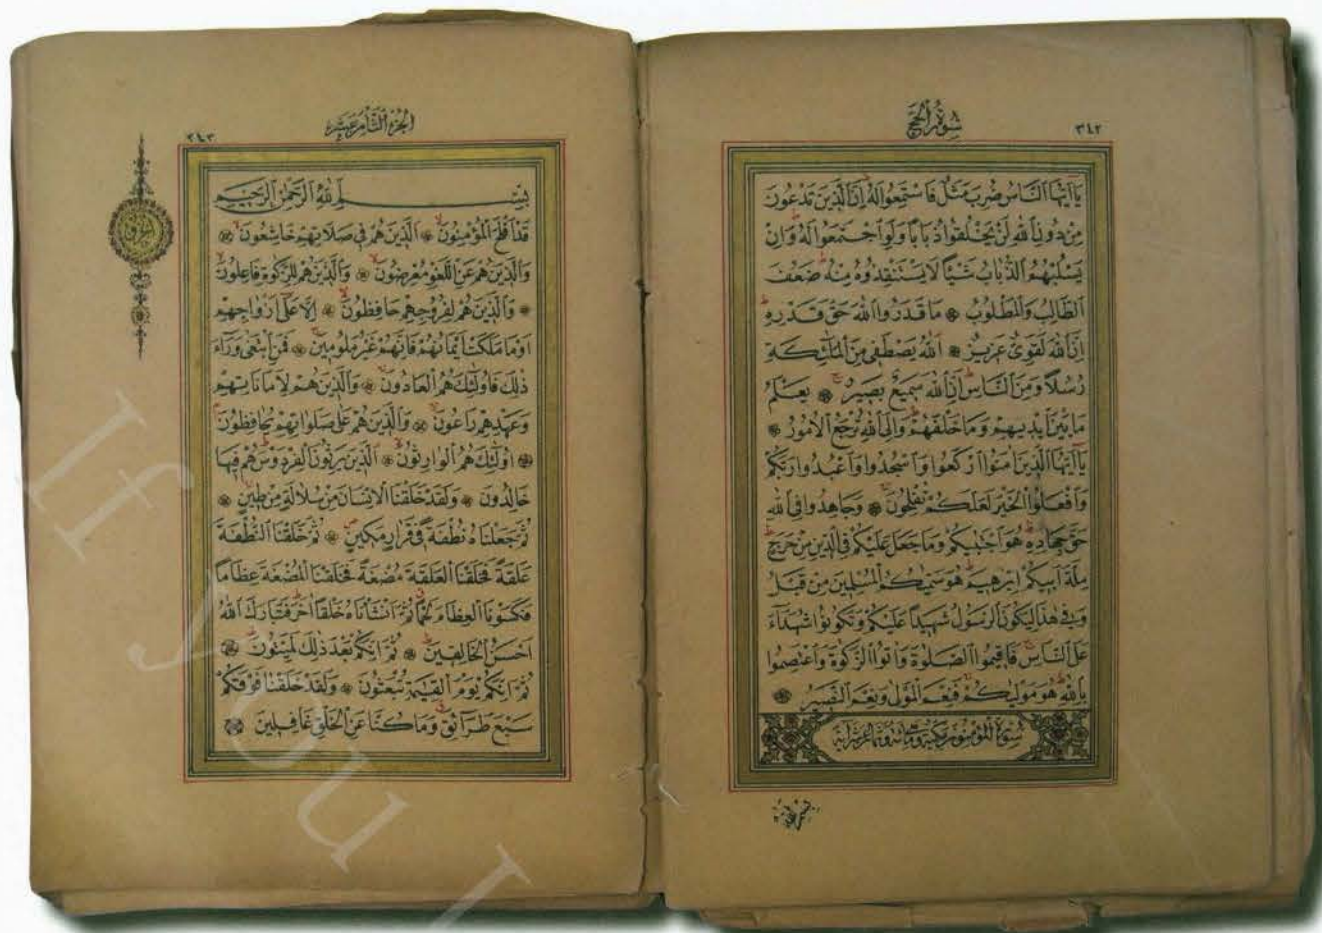 ٣٤٢
سورة الحج
يا ايها الناس ضرب مثل فاستمعوا له ان الذين تدعون
من دون الله لن يخلقوا ذبابا ولو اجتمعوا له وان
يسلبهم الذباب شيئا لا يستنقذوه منه ضعف
الطالب والمطلوب ما قدروا الله حق قدره
ان الله لقوي عزيز الله يصطفي من الملئكة
رسلا ومن الناس ان الله سميع بصير يعلم
ما بين ايديهم وما خلفهم والى الله ترجع الامور
يا ايها الذين امنوا اركعوا واسجدوا واعبدوا ربكم
وافعلوا الخير لعلكم تفلحون وجاهدوا في الله
حق جهاده هو اجتبيكم وما جعل عليكم في الدين من حرج
ملة ابيكم ابرهيم هو سميكم المسلمين من قبل
وفي هذا ليكون الرسول شهيدا عليكم وتكونوا شهداء
على الناس فاقيموا الصلوة واتوا الزكوة واعتصموا
بالله هو موليكم فنعم المولى ونعم النصير
سورة المؤمنون مكية وهي مائة وثماني عشرة اية
٣٤٣
الجزء الثامن عشر
بسم الله الرحمن الرحيم
قد افلح المؤمنون الذين هم في صلاتهم خاشعون
والذين هم عن اللغو معرضون والذين هم للزكوة فاعلون
والذين هم لفروجهم حافظون الا على ازواجهم
او ما ملكت ايمانهم فانهم غير ملومين فمن ابتغى وراء
ذلك فاولئك هم العادون والذين هم لاماناتهم
وعهدهم راعون والذين هم على صلواتهم يحافظون
اولئك هم الوارثون الذين يرثون الفردوس هم فيها
خالدون ولقد خلقنا الانسان من سلالة من طين
ثم جعلناه نطفة في قرار مكين ثم خلقنا النطفة
علقة فخلقنا العلقة مضغة فخلقنا المضغة عظاما
فكسونا العظام لحما ثم انشأناه خلقا اخر فتبارك الله
احسن الخالقين ثم انكم بعد ذلك لميتون
ثم انكم يوم القيمة تبعثون ولقد خلقنا فوقكم
سبع طرائق وما كنا عن الخلق غافلين
If you